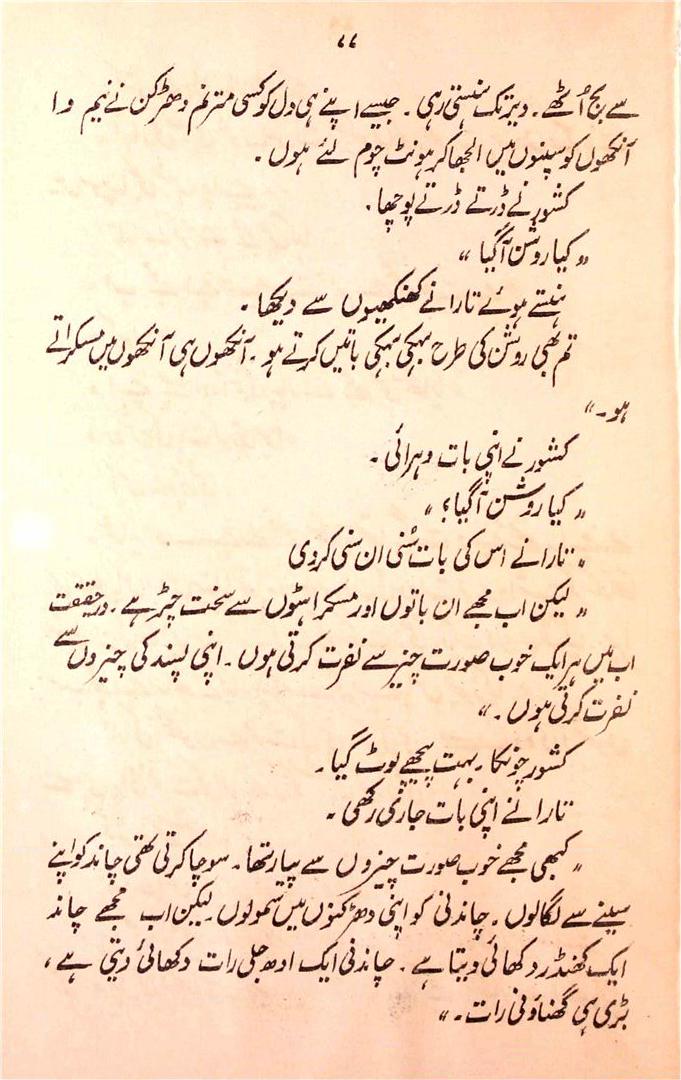 ۷۷
سے بج اُٹھے۔ دیر تک ہنستی رہی۔ جیسے اپنے ہی دل کو کسی مترنم دھڑکن نے نیم وا
آنکھوں کو سپنوں میں الجھا کر ہونٹ چوم لئے ہوں۔
کشور نے ڈرتے ڈرتے پوچھا۔
"کیا روشن آگیا"
ہنستے ہوئے تارا نے کنکھیوں سے دیکھا۔
تم بھی روشن کی طرح بہکی بہکی باتیں کرتے ہو۔ آنکھوں ہی آنکھوں میں مسکراتے
ہو۔"
کشور نے اپنی بات دہرائی۔
"کیا روشن آگیا؟"
"تارا نے اس کی بات سُنی ان سنی کر دی
"لیکن اب مجھے ان باتوں اور مسکراہٹوں سے سخت چڑ ہے۔ درحقیقت
اب میں ہر ایک خوب صورت چیز سے نفرت کرتی ہوں۔ اپنی پسند کی چیزوں سے
نفرت کرتی ہوں۔"
کشور چونکا۔ بہت پیچھے لوٹ گیا۔
تارا نے اپنی بات جاری رکھی۔
"کبھی مجھے خوب صورت چیزوں سے پیار تھا۔ سوچا کرتی تھی چاند کو اپنے
سینے سے لگالوں۔ چاندنی کو اپنی دھڑکنوں میں سمولوں۔ لیکن اب مجھے چاند
ایک کھنڈر دکھائی دیتا ہے۔ چاندنی ایک ادھ جلی رات دکھائی دیتی ہے،
بڑی ہی گھناؤنی رات۔"